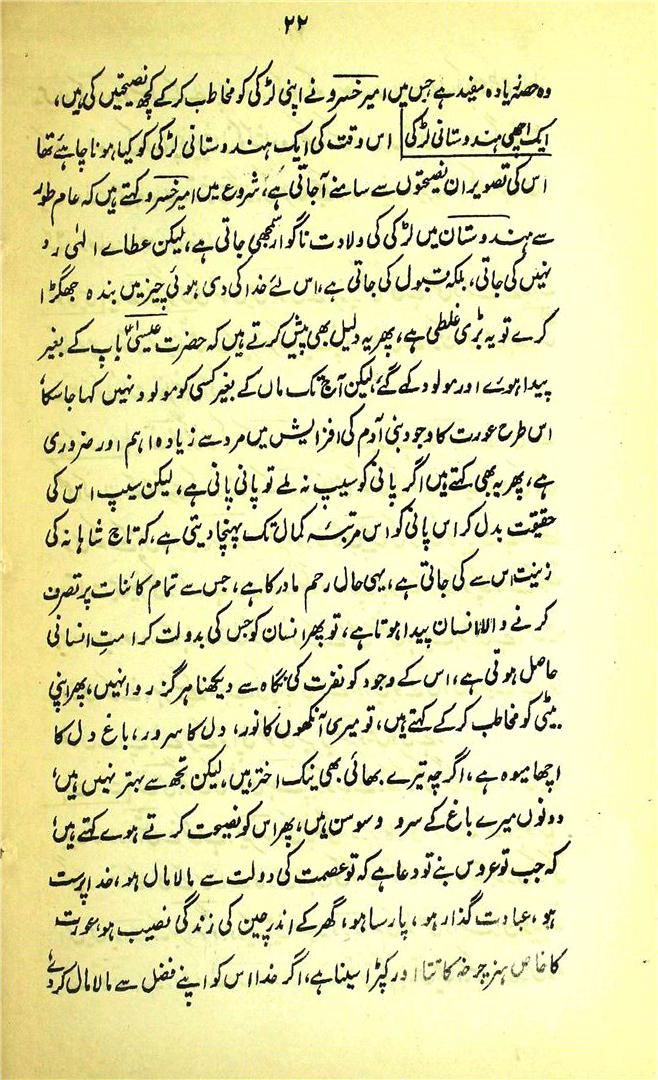 ۲۲
وہ حصہ زیادہ مفید ہے جس میں امیر خسرو نے اپنی لڑکی کو مخاطب کرکے کچھ نصیحتیں کی ہیں،
ایک اچھی ہندوستانی لڑکی اس وقت کی ایک ہندوستانی لڑکی کو کیا ہونا چاہئے تھا
اس کی تصویر ان نصیحتوں سے سامنے آجاتی ہے، شروع میں امیر خسرو کہتے ہیں کہ عام طور
سے ہندوستان میں لڑکی کی ولادت ناگوار سمجھی جاتی ہے، لیکن عطاے الٰہی رد
نہیں کی جاتی، بلکہ قبول کی جاتی ہے، اس لئے خدا کی دی ہوئی چیز میں بندہ جھگڑا
کرے تو یہ بڑی غلطی ہے، پھر یہ دلیل بھی پیش کرتے ہیں کہ حضرت عیسیٰؑ باپ کے بغیر
پیدا ہوے اور مولود کہے گئے، لیکن آج تک ماں کے بغیر کسی کو مولود نہیں کہا جاسکا
اس طرح عورت کا وجود بنی آدم کی افزایش میں مرد سے زیادہ اہم اور ضروری
ہے، پھر یہ بھی کہتے ہیں اگر پانی کو سیپ نہ ملے تو پانی پانی ہے، لیکن سیپ اس کی
حقیقت بدل کر اس پانی کو اس مرتبۂ کمال تک پہنچا دیتی ہے، کہ تاج شاہانہ کی
زینت اس سے کی جاتی ہے، یہی حال رحم مادر کا ہے، جس سے تمام کائنات پر تصرف
کرنے والا انسان پیدا ہوتا ہے، تو پھر انسان کو جس کی بدولت کرامتِ انسانی
حاصل ہوتی ہے، اس کے وجود کو نفرت کی نگاہ سے دیکھنا ہرگز روا نہیں، پھر اپنی
بیٹی کو مخاطب کرکے کہتے ہیں، تو میری آنکھوں کا نور، دل کا سرور، باغ دل کا
اچھا میوہ ہے، اگرچہ تیرے بھائی بھی نیک اختر ہیں، لیکن تجھ سے بہتر نہیں ہیں،
دونوں میرے باغ کے سرو و سوسن ہیں، پھر اس کو نصیحت کرتے ہوے کہتے ہیں،
کہ جب تو عروس بنے تو دعا ہے کہ تو عصمت کی دولت سے مالا مال ہو، خدا پرست
ہو، عبادت گذار ہو، پارسا ہو، گھر کے اندر چین کی زندگی نصیب ہو، عورت
کا خاص ہنر چرخہ کاتنا اور کپڑا سینا ہے، اگر خدا اس کو اپنے فضل سے مالا مال کردے